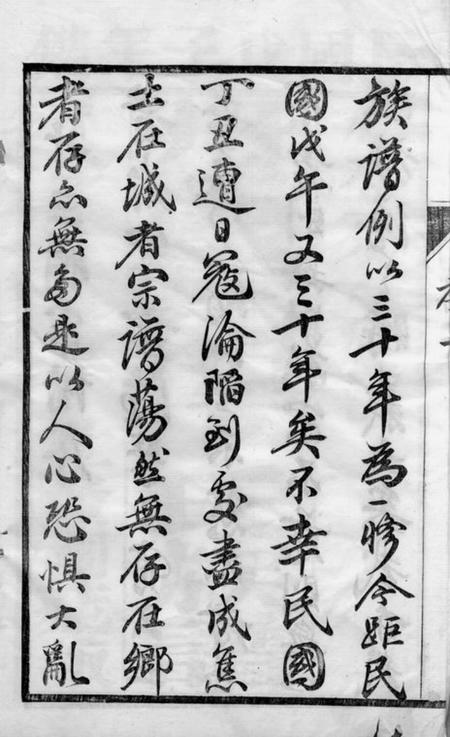 族譜例以三十年為一修今距民
國戊午又三十年矣不幸民國
丁丑遭日寇淪陷到處盡成焦
土在城者宗譜蕩然無存在鄉
者存亦無多是以人心恐懼大亂